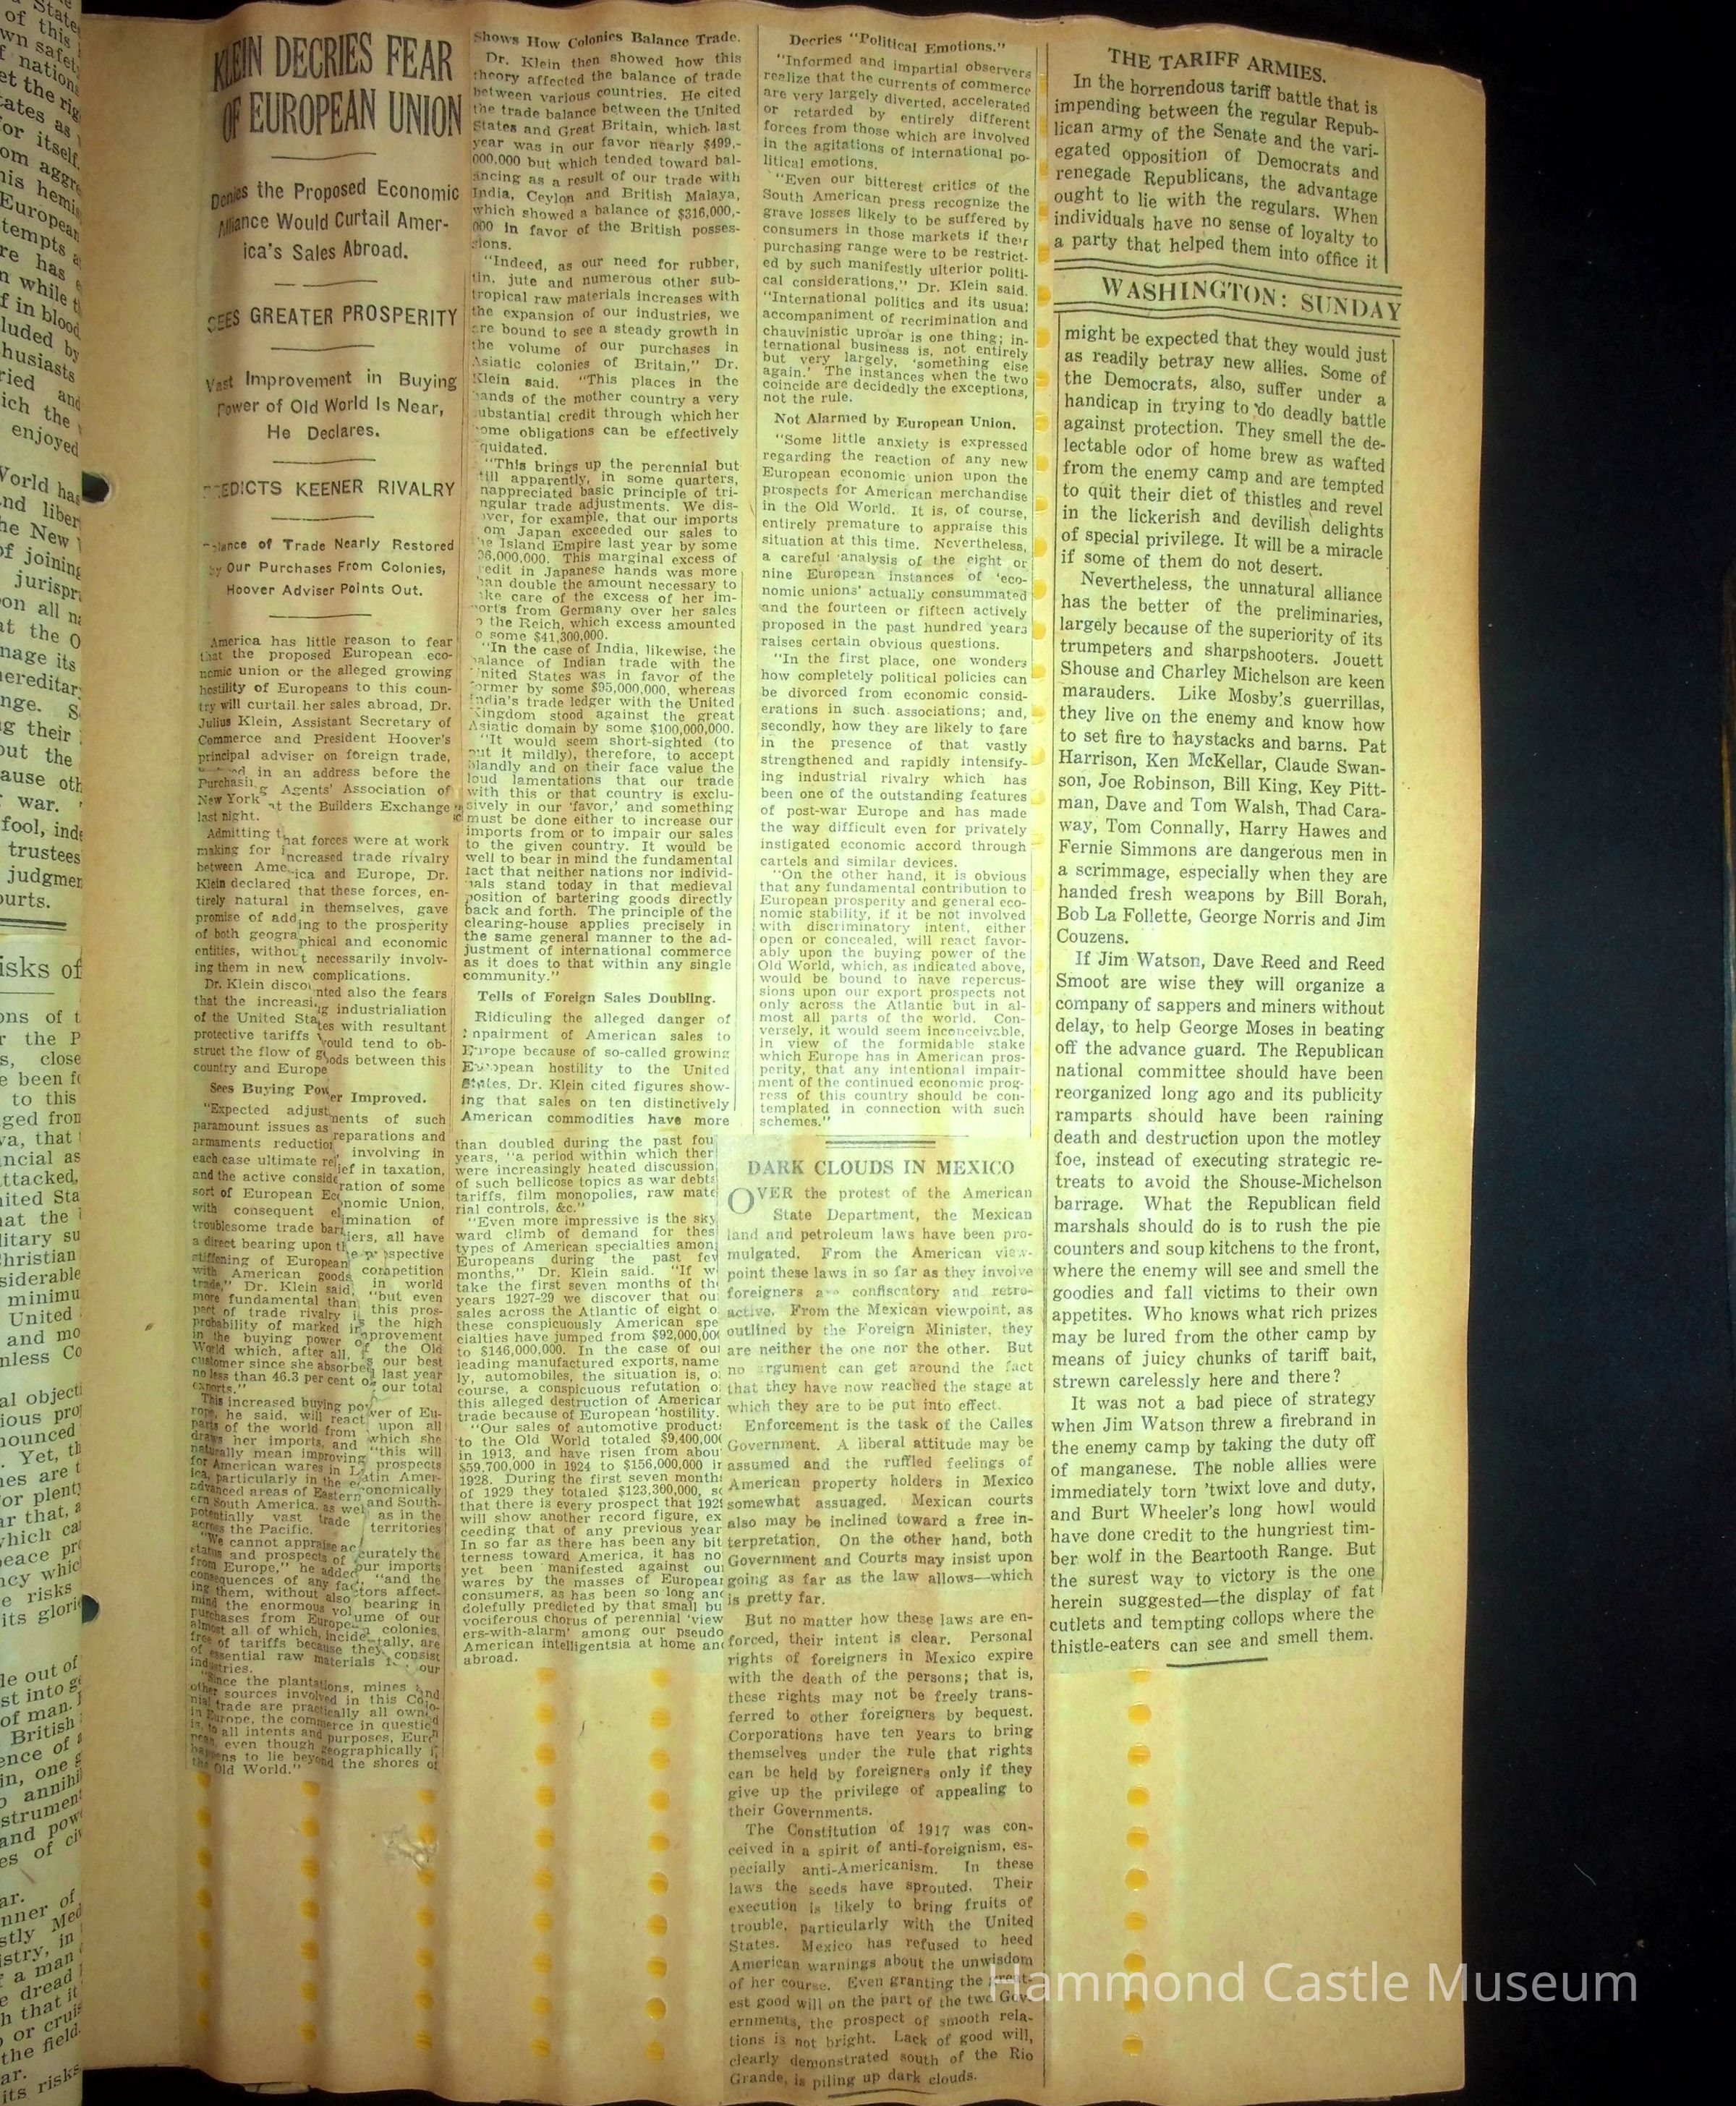 KLEIN DECRIES FEAR
OF EUROPEAN UNION
Denies the Proposed Economic
Alliance Would Curtail Amer-
ica's Sales Abroad.
SEES GREATER PROSPERITY
Vast Improvement in Buying
Power of Old World Is Near,
He Declares.
PREDICTS KEENER RIVALRY
Balance of Trade Nearly Restored
by Our Purchases From Colonies,
Hoover Adviser Points Out.
America has little reason to fear
that the proposed European eco-
nomic union or the alleged growing
hostility of Europeans to this coun-
try will curtail her sales abroad, Dr.
Julius Klein, Assistant Secretary of
Commerce and President Hoover's
principal adviser on foreign trade,
in an address before the
Purchasing Agents' Association of
New York at the Builders Exchange
last night.
Admitting that forces were at work
making for increased trade rivalry
between America and Europe, Dr.
Klein declared that these forces, en-
tirely natural in themselves, gave
promise of adding to the prosperity
of both geographical and economic
entities, without necessarily involv-
ing them in new complications.
Dr. Klein discounted also the fears
that the increasing industrialiation
of the United States with resultant
protective tariffs would tend to ob-
struct the flow of goods between this
country and Europe
Sees Buying Power Improved.
"Expected adjustments of such
paramount issues as reparations and
armaments reduction, involving in
each case ultimate relief in taxation,
and the active consideration of some
sort of European Economic Union,
with consequent elimination of
troublesome trade barriers, all have
a direct bearing upon the prospective
stiffening of European competition
with American goods in world
trade," Dr. Klein said, "but even
more fundamental than this pros-
pect of trade rivalry is the high
probability of marked improvement
in the buying power of the Old
World which, after all, is our best
customer since she absorbed last year
no less than 46.3 per cent of our total
exports."
This increased buying power of Eu-
rope, he said, will react upon all
parts of the world from which she
draws her imports, and "this will
naturally mean improving prospects
for American wares in Latin Amer-
ica, particularly in the economically
advanced areas of Eastern and South-
ern South America, as well as in the
potentially vast trade territories
across the Pacific.
"We cannot appraise accurately the
status and prospects of our imports
from Europe," he added, "and the
consequences of any factors affect-
ing them, without also bearing in
mind the enormous volume of our
purchases from European colonies,
almost all of which, incidentally, are
free of tariffs because they consist
of essential raw materials for our
industries.
"Since the plantations, mines and
other sources involved in this Colo-
nial trade are practically all owned
in Europe, the commerce in question
is, to all intents and purposes, Euro-
pean, even though geographically it
happens to lie beyond the shores of
the Old World."
Shows How Colonies Balance Trade.
Dr. Klein then showed how this
theory affected the balance of trade
between various countries. He cited
the trade balance between the United
States and Great Britain, which last
year was in our favor nearly $499,-
000,000 but which tended toward bal-
ancing as a result of our trade with
India, Ceylon and British Malaya,
which showed a balance of $316,000,-
000 in favor of the British posses-
sions.
"Indeed, as our need for rubber,
tin, jute and numerous other sub-
tropical raw materials increases with
the expansion of our industries, we
are bound to see a steady growth in
the volume of our purchases in
Asiatic colonies of Britain," Dr.
Klein said. "This places in the
hands of the mother country a very
substantial credit through which her
home obligations can be effectively
liquidated.
"This brings up the perennial but
still apparently, in some quarters,
unappreciated basic principle of tri-
angular trade adjustments. We dis-
cover, for example, that our imports
from Japan exceeded our sales to
the Island Empire last year by some
96,000,000. This marginal excess of
credit in Japanese hands was more
than double the amount necessary to
take care of the excess of her im-
ports from Germany over her sales
to the Reich, which excess amounted
to some $41,300,000.
"In the case of India, likewise, the
balance of Indian trade with the
United States was in favor of the
former by some $95,000,000, whereas
India's trade ledger with the United
Kingdom stood against the great
Asiatic domain by some $100,000,000.
"It would seem short-sighted (to
put it mildly), therefore, to accept
blandly and on their face value the
loud lamentations that our trade
with this or that country is exclu-
sively in our 'favor,' and something
must be done either to increase our
imports from or to impair our sales
to the given country. It would be
well to bear in mind the fundamental
fact that neither nations nor individ-
uals stand today in that medieval
position of bartering goods directly
back and forth. The principle of the
clearing-house applies precisely in
the same general manner to the ad-
justment of international commerce
as it does to that within any single
community."
Tells of Foreign Sales Doubling.
Ridiculing the alleged danger of
impairment of American sales to
Europe because of so-called growing
European hostility to the United
States, Dr. Klein cited figures show-
ing that sales on ten distinctively
American commodities have more
than doubled during the past four
years, "a period within which there
were increasingly heated discussions
of such bellicose topics as war debts,
tariffs, film monopolies, raw mate-
rial controls, &c."
"Even more impressive is the sky-
ward climb of demand for these
types of American specialties among
Europeans during the past few
months," Dr. Klein said. "If we
take the first seven months of the
years 1927-29 we discover that our
sales across the Atlantic of eight of
these conspicuously American spe-
cialties have jumped from $92,000,000
to $146,000,000. In the case of our
leading manufactured exports, name-
ly, automobiles, the situation is, of
course, a conspicuous refutation of
this alleged destruction of American
trade because of European 'hostility.'
"Our sales of automotive products
to the Old World totaled $9,400,000
in 1913, and have risen from about
$59,700,000 in 1924 to $156,000,000 in
1928. During the first seven months
of 1929 they totaled $123,300,000, so
that there is every prospect that 1929
will show another record figure, ex-
ceeding that of any previous year.
In so far as there has been any bit-
terness toward America, it has not
yet been manifested against our
wares by the masses of European
consumers, as has been so long and
dolefully predicted by that small but
vociferous chorus of perennial 'view-
ers-with-alarm' among our pseudo
American intelligentsia at home and
abroad.
Decries "Political Emotions."
"Informed and impartial observers
realize that the currents of commerce
are very largely diverted, accelerated
or retarded by entirely different
forces from those which are involved
in the agitations of international po-
litical emotions.
"Even our bitterest critics of the
South American press recognize the
grave losses likely to be suffered by
consumers in those markets if their
purchasing range were to be restrict-
ed by such manifestly ulterior politi-
cal considerations," Dr. Klein said.
"International politics and its usual
accompaniment of recrimination and
chauvinistic uproar is one thing; in-
ternational business is, not entirely
but very largely, 'something else
again.' The instances when the two
coincide are decidedly the exceptions,
not the rule.
Not Alarmed by European Union.
"Some little anxiety is expressed
regarding the reaction of any new
European economic union upon the
prospects for American merchandise
in the Old World. It is, of course,
entirely premature to appraise this
situation at this time. Nevertheless,
a careful analysis of the eight or
nine European instances of 'eco-
nomic unions' actually consummated
and the fourteen or fifteen actively
proposed in the past hundred years
raises certain obvious questions.
"In the first place, one wonders
how completely political policies can
be divorced from economic consid-
erations in such associations; and,
secondly, how they are likely to fare
in the presence of that vastly
strengthened and rapidly intensify-
ing industrial rivalry which has
been one of the outstanding features
of post-war Europe and has made
the way difficult even for privately
instigated economic accord through
cartels and similar devices.
"On the other hand, it is obvious
that any fundamental contribution to
European prosperity and general eco-
nomic stability, if it be not involved
with discriminatory intent, either
open or concealed, will react favor-
ably upon the buying power of the
Old World, which, as indicated above,
would be bound to have repercus-
sions upon our export prospects not
only across the Atlantic but in al-
most all parts of the world. Con-
versely, it would seem inconceivable,
in view of the formidable stake
which Europe has in American pros-
perity, that any intentional impair-
ment of the continued economic prog-
ress of this country should be con-
templated in connection with such
schemes."
DARK CLOUDS IN MEXICO
OVER the protest of the American
State Department, the Mexican
land and petroleum laws have been pro-
mulgated. From the American view-
point these laws in so far as they involve
foreigners are confiscatory and retro-
active. From the Mexican viewpoint, as
outlined by the Foreign Minister, they
are neither the one nor the other. But
no argument can get around the fact
that they have now reached the stage at
which they are to be put into effect.
Enforcement is the task of the Calles
Government. A liberal attitude may be
assumed and the ruffled feelings of
American property holders in Mexico
somewhat assuaged. Mexican courts
also may be inclined toward a free in-
terpretation. On the other hand, both
Government and Courts may insist upon
going as far as the law allows—which
is pretty far.
But no matter how these laws are en-
forced, their intent is clear. Personal
rights of foreigners in Mexico expire
with the death of the persons; that is,
these rights may not be freely trans-
ferred to other foreigners by bequest.
Corporations have ten years to bring
themselves under the rule that rights
can be held by foreigners only if they
give up the privilege of appealing to
their Governments.
The Constitution of 1917 was con-
ceived in a spirit of anti-foreignism, es-
pecially anti-Americanism. In these
laws the seeds have sprouted. Their
execution is likely to bring fruits of
trouble, particularly with the United
States. Mexico has refused to heed
American warnings about the unwisdom
of her course. Even granting the great-
est good will on the part of the two Gov-
ernments, the prospect of smooth rela-
tions is not bright. Lack of good will,
clearly demonstrated south of the Rio
Grande, is piling up dark clouds.
THE TARIFF ARMIES.
In the horrendous tariff battle that is
impending between the regular Repub-
lican army of the Senate and the vari-
egated opposition of Democrats and
renegade Republicans, the advantage
ought to lie with the regulars. When
individuals have no sense of loyalty to
a party that helped them into office it
WASHINGTON: SUNDAY
might be expected that they would just
as readily betray new allies. Some of
the Democrats, also, suffer under a
handicap in trying to do deadly battle
against protection. They smell the de-
lectable odor of home brew as wafted
from the enemy camp and are tempted
to quit their diet of thistles and revel
in the lickerish and devilish delights
of special privilege. It will be a miracle
if some of them do not desert.
Nevertheless, the unnatural alliance
has the better of the preliminaries,
largely because of the superiority of its
trumpeters and sharpshooters. Jouett
Shouse and Charley Michelson are keen
marauders. Like Mosby's guerrillas,
they live on the enemy and know how
to set fire to haystacks and barns. Pat
Harrison, Ken McKellar, Claude Swan-
son, Joe Robinson, Bill King, Key Pitt-
man, Dave and Tom Walsh, Thad Cara-
way, Tom Connally, Harry Hawes and
Fernie Simmons are dangerous men in
a scrimmage, especially when they are
handed fresh weapons by Bill Borah,
Bob La Follette, George Norris and Jim
Couzens.
If Jim Watson, Dave Reed and Reed
Smoot are wise they will organize a
company of sappers and miners without
delay, to help George Moses in beating
off the advance guard. The Republican
national committee should have been
reorganized long ago and its publicity
ramparts should have been raining
death and destruction upon the motley
foe, instead of executing strategic re-
treats to avoid the Shouse-Michelson
barrage. What the Republican field
marshals should do is to rush the pie
counters and soup kitchens to the front,
where the enemy will see and smell the
goodies and fall victims to their own
appetites. Who knows what rich prizes
may be lured from the other camp by
means of juicy chunks of tariff bait,
strewn carelessly here and there?
It was not a bad piece of strategy
when Jim Watson threw a firebrand in
the enemy camp by taking the duty off
of manganese. The noble allies were
immediately torn 'twixt love and duty,
and Burt Wheeler's long howl would
have done credit to the hungriest tim-
ber wolf in the Beartooth Range. But
the surest way to victory is the one
herein suggested—the display of fat
cutlets and tempting collops where the
thistle-eaters can see and smell them.
Hammond Castle Museum